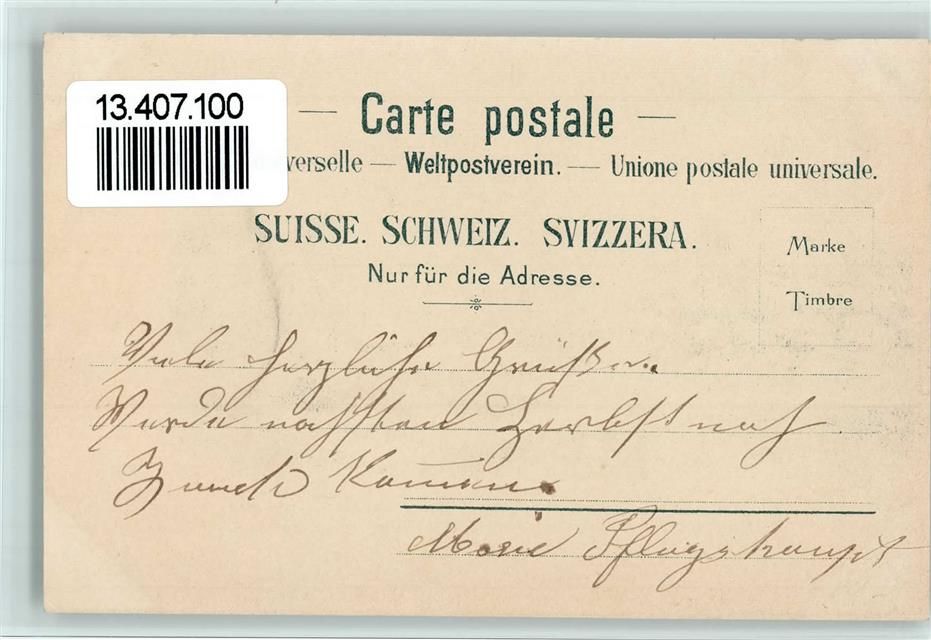 13.407.100
— Carte postale —
verselle — Weltpostverein. — Unione postale universale.
SUISSE. SCHWEIZ. SVIZZERA.
Nur für die Adresse.
Marke
Timbre
Viele herzliche Grüsse..
Werde nächsten Herbst nach
Kommen.
Marie Pflugshaupt